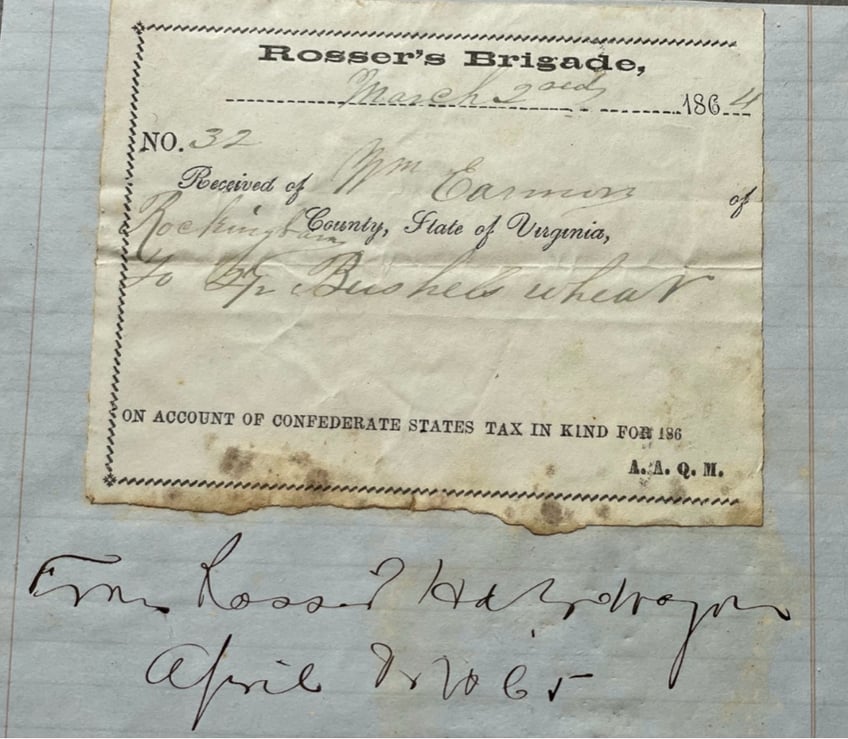 Rosser's Brigade,
March 2ond 1864
NO. 32
Received of Wm Earmon of
Rockingham County, State of Virginia,
To Bushels wheat
ON ACCOUNT OF CONFEDERATE STATES TAX IN KIND FOR 186
A. A. Q. M.
From Rosser Hd Qr wagon
April 65